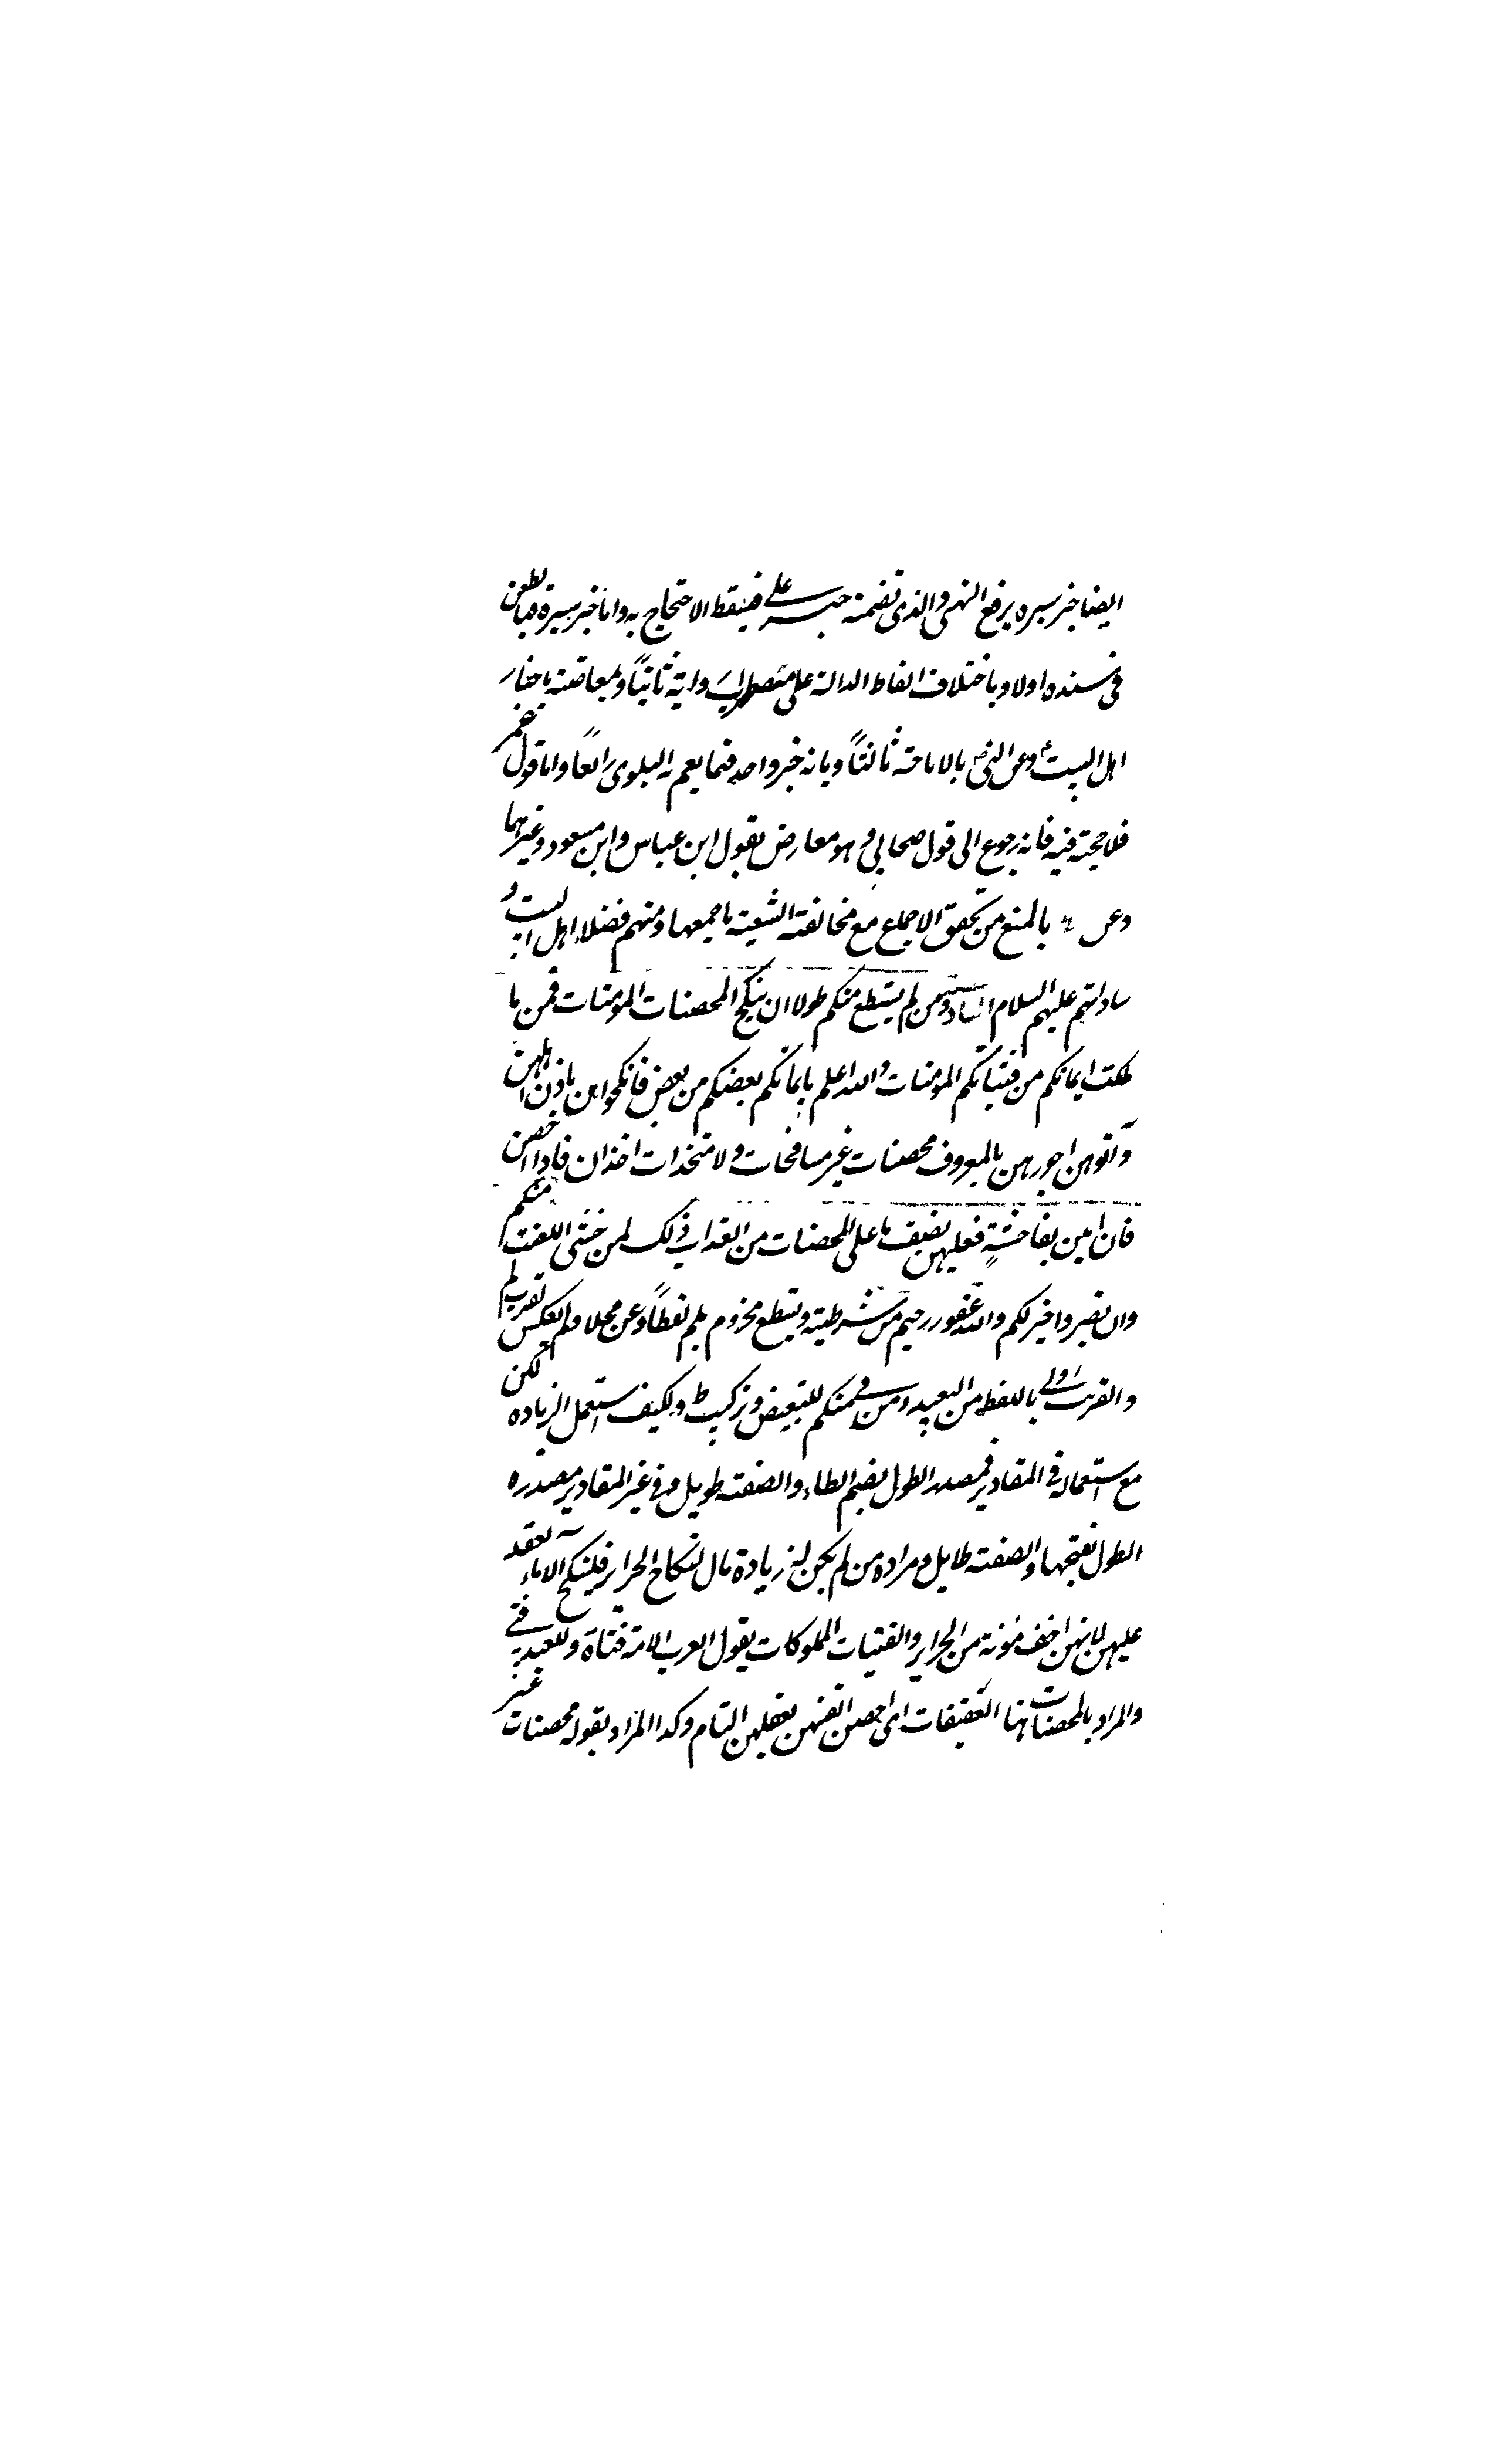 ايضا خبر سبره يرفع النهى والذى تضمنه خبر على فيسقط الاحتجاج به واما خبر سبرة فبالطعن
فى سنده اولا وباختلاف الفاظ الدالة على رواية ثانيًا وبمعارضته باخبار
اهل البيت ع وعن النبى ص بالاباحة ثالثًا وبانه خبر واحد فيما يعم به البلوى رابعًا واما قول عمر
فلا حجة فيه فانه رجوع الى قول صحابى وهو معارض بقول ابن عباس وابن مسعود وغيرهما
وعن بالمنع من تحقق الاجماع مع مخالفة الشيعة باجمعها ومنهم فضلاء اهل البيت و
ساداتهم عليهم السلام السادسة ومن لم يستطع منكم طولا ان ينكح المحصنات المؤمنات فمن ما
ملكت ايمانكم من فتياتكم المؤمنات والله اعلم بايمانكم بعضكم من بعض فانكحوهن باذن اهلهن
وآتوهن اجورهن بالمعروف محصنات غير مسافحات ولا متخذات اخدان فاذا احصن
فان اتين بفاحشةٍ فعليهن نصف ما على المحصنات من العذاب ذلك لمن خشى العنت منكم
وان تصبروا خير لكم والله غفور رحيم من شرطية ويستطع مجزوم بلم لفظًا وعن محلا ولم يعكس لقرب لم
والقريب اولى باللفظ من البعيد ومن فى منكم للتبعيض وتركيب ط و ل كيف استعمل الزياده لكن
مع استعماله فى المقادير فمصدر الطول بضم الطاء والصفة طويل وفى غير المقادير مصدره
الطول بفتحها والصفة طايل ومراده من لم يكن له زيادة مال لنكاح الحراير فلينكح الاماء بعقد
عليهن لانهن اخف مؤنة من الحراير والفتيات المملوكات يقول العرب الامة فتاة وللعبد فتى
والمراد بالمحصنات هنا العفيفات اى احصن انفسهن بعقلهن التام وكذا المراد بقوله محصنات غير